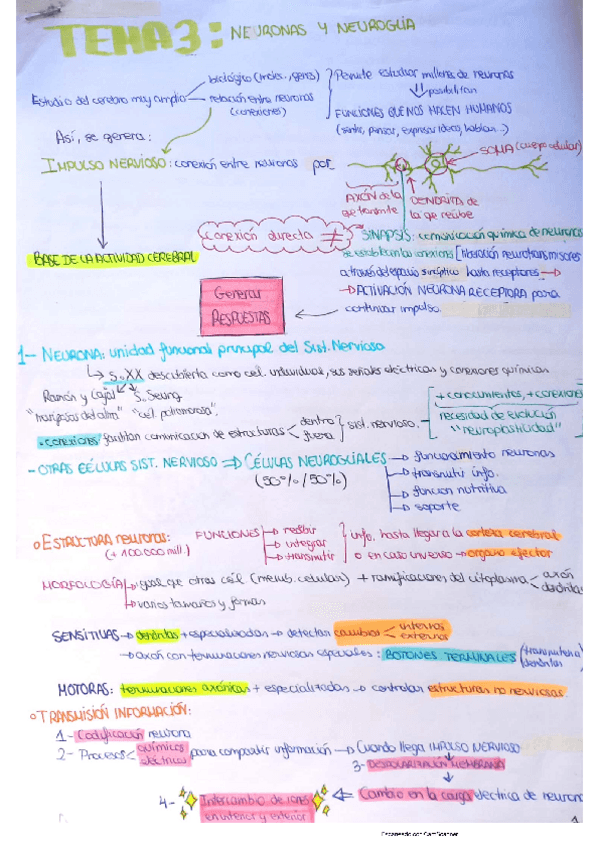 TEMA 3: NEURONAS Y NEUROGLÍA
biológico (molec., genes)
Estudio del cerebro muy amplio
relación entre neuronas
(conexiones)
Permite estudiar millones de neuronas
posibilitan
FUNCIONES QUE NOS HACEN HUMANOS
(sentir, pensar, expresar ideas, hablar...)
Así, se genera:
IMPULSO NERVIOSO: conexión entre neuronas por
SOMA (cuerpo celular)
AXÓN de la que transmite
DENDRITA de la que recibe
conexión directa ≠ SINAPSIS: comunicación química de neuronas
se establecen las conexiones [liberación neurotransmisores
a través del espacio sináptico hasta receptores →
→ ACTIVACIÓN NEURONA RECEPTORA para
continuar impulso.
BASE DE LA ACTIVIDAD CEREBRAL
Generar
RESPUESTAS
1- NEURONA: unidad funcional principal del Sist. Nervioso
↳ S.XX descubierta como cél. individuales, sus señales eléctricas y conexiones químicas
Ramón y Cajal S. Seung
"mariposas del alma" "cél. poliamorosa".
• conexiones facilitan comunicación de estructuras dentro fuera sist. nervioso.
+ conocimientos, + conexiones
necesidad de evolución
"neuroplasticidad"
- OTRAS CÉLULAS SIST. NERVIOSO ⇒ CÉLULAS NEUROGLIALES
(50%/50%)
→ funcionamiento neuronas
→ transmitir info.
→ función nutritiva
→ soporte
○ ESTRUCTURA neuronas:
(+ 100.000 mill.)
FUNCIONES
→ recibir
→ integrar
→ transmitir
info. hasta llegar a la corteza cerebral
o en caso inverso → órgano efector
MORFOLOGÍA → igual que otras cél (memb. celular) + ramificaciones del citoplasma axón dendritas
→ varios tamaños y formas
SENSITIVAS → dendritas + especializadas → detectan cambios internos externos
→ axón con terminaciones nerviosas especiales: BOTONES TERMINALES
MOTORAS: terminaciones axónicas + especializadas → controlan estructuras no nerviosas.
○ TRANSMISIÓN INFORMACIÓN:
1- Codificación neurona
2- Procesos químicos eléctricos para compartir información → Cuando llega IMPULSO NERVIOSO
3- DESPOLARIZACIÓN MEMBRANA
Cambio en la carga eléctrica de neurona
4- Intercambio de iones
en interior y exterior
1
Escaneado con CamScanner